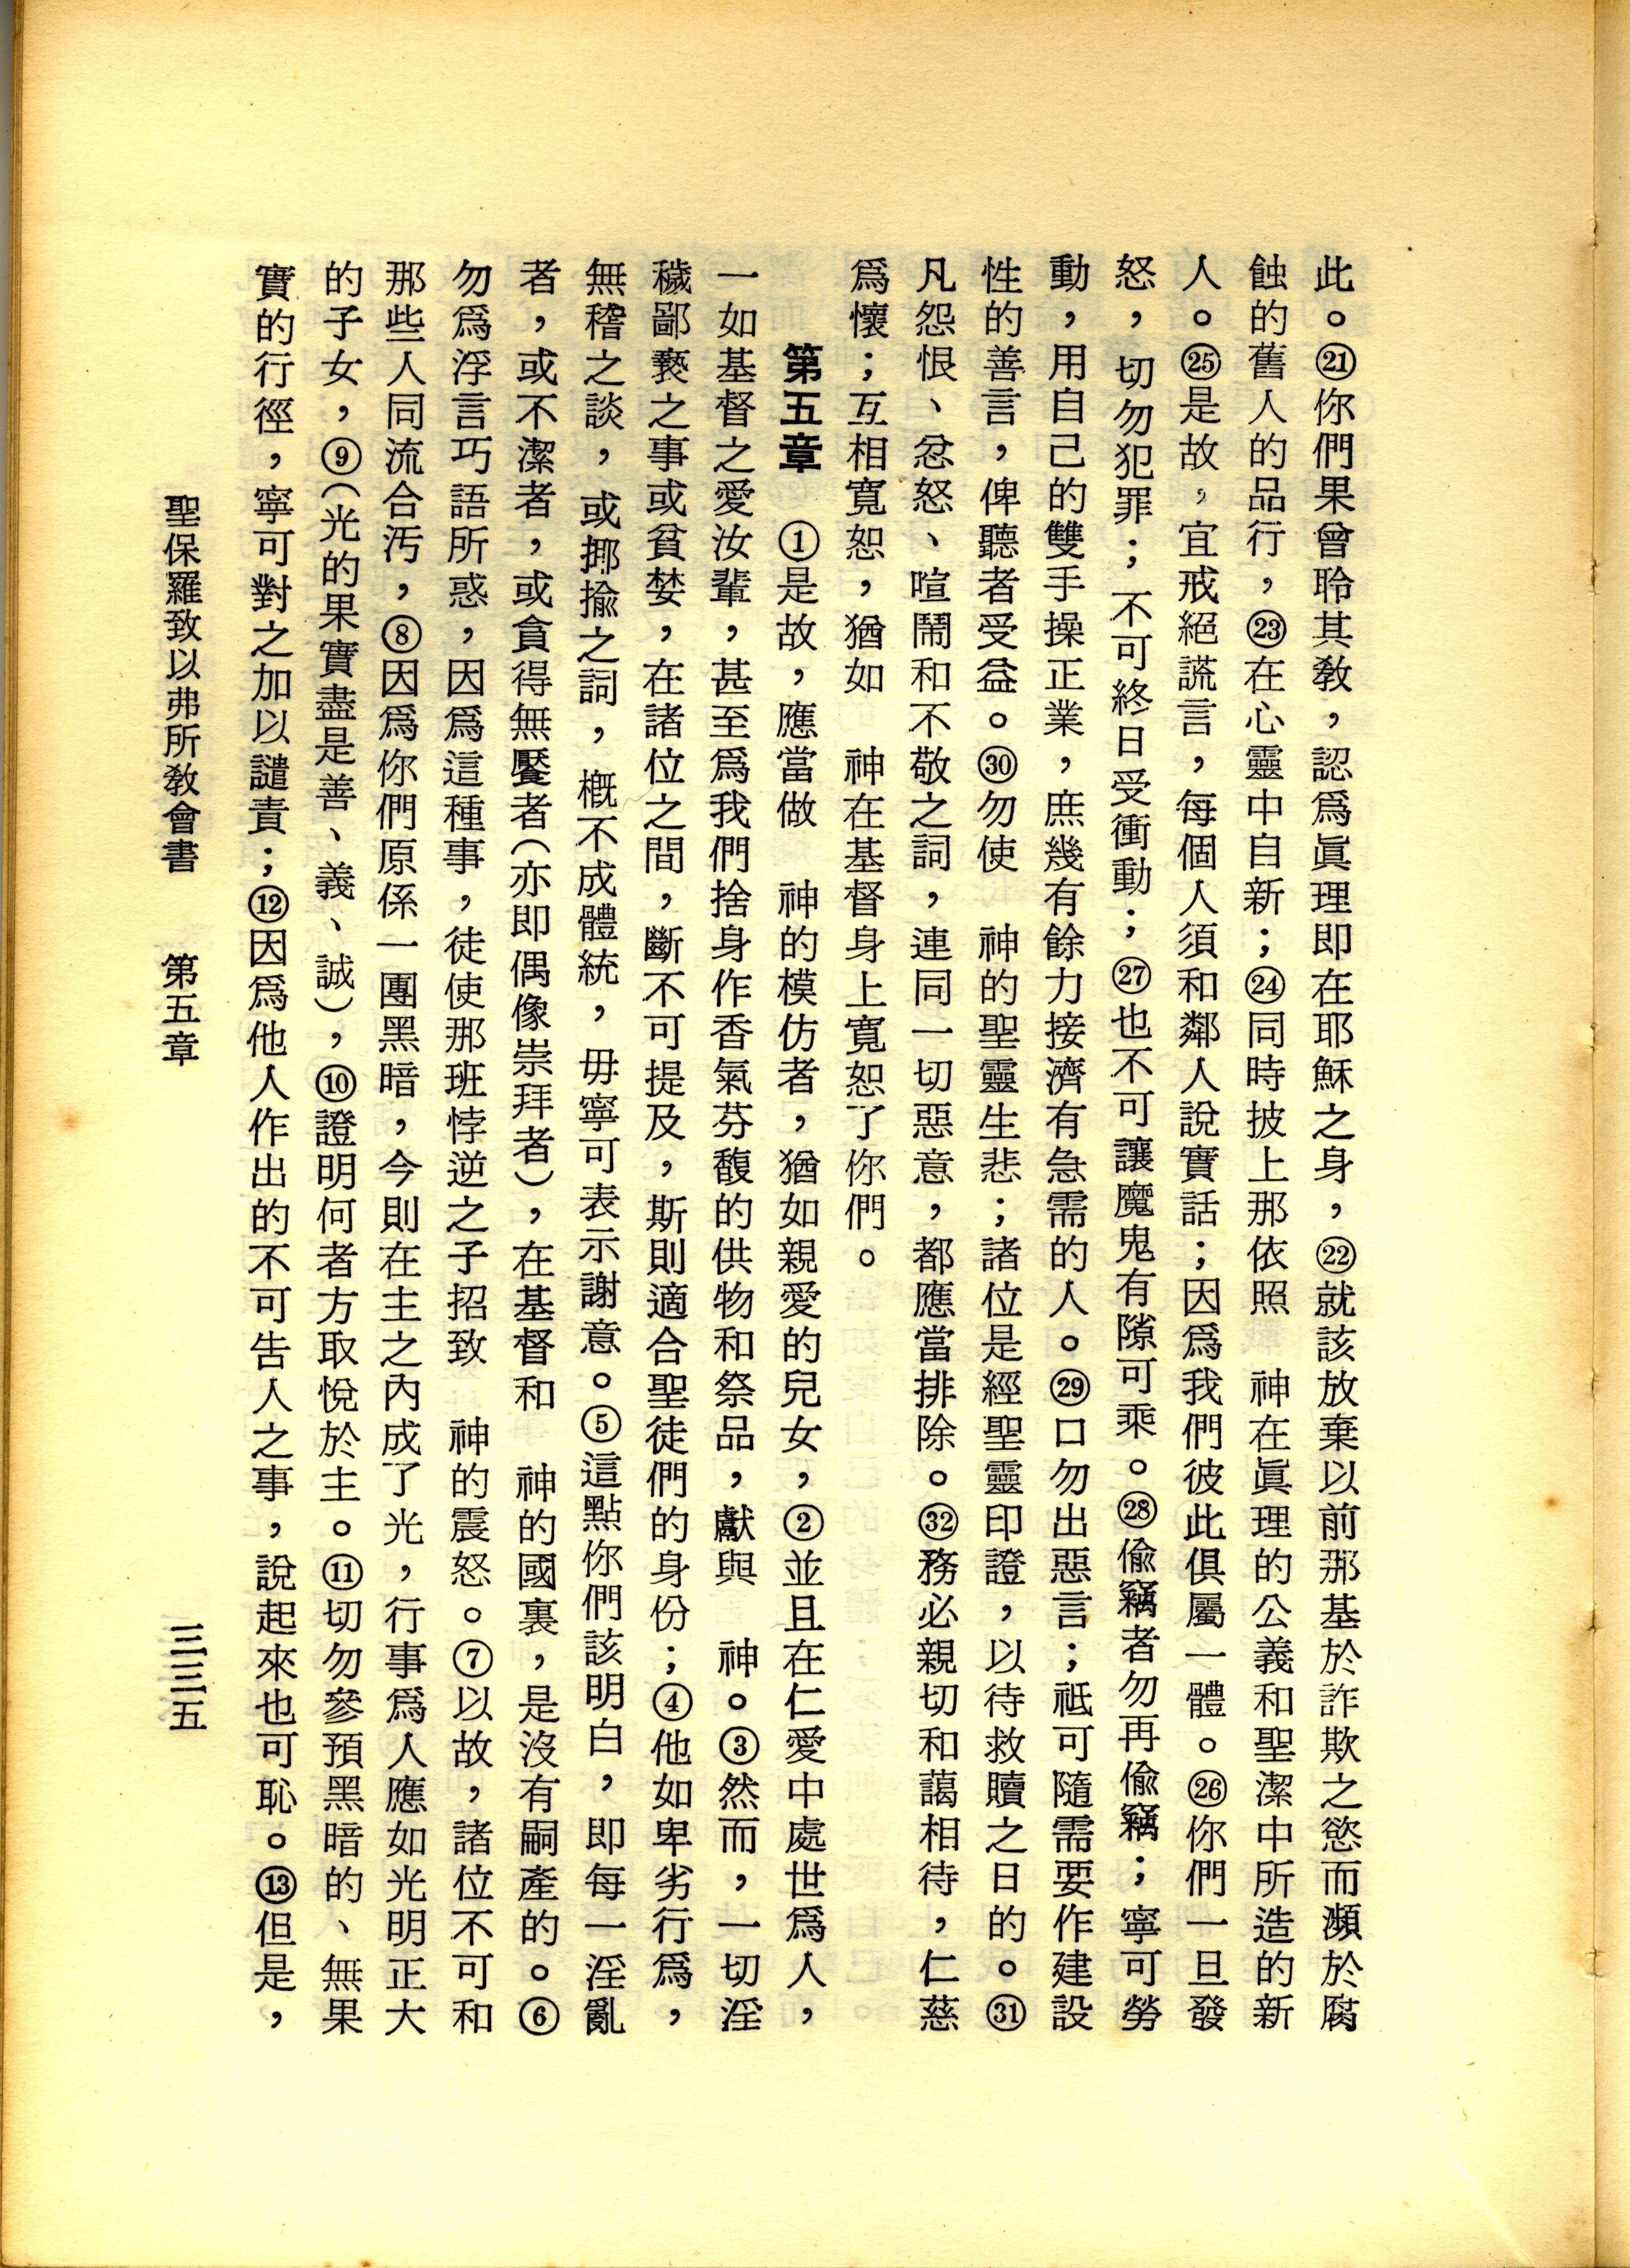 此。㉑你們果曾聆其敎，認爲眞理即在耶穌之身，㉒就該放棄以前那基於詐欺之慾而瀕於腐
蝕的舊人的品行，㉓在心靈中自新；㉔同時披上那依照　神在眞理的公義和聖潔中所造的新
人。㉕是故，宜戒絕謊言，每個人須和鄰人說實話；因爲我們彼此俱屬一體。㉖你們一旦發
怒，切勿犯罪；不可終日受衝動；㉗也不可讓魔鬼有隙可乘。㉘偷竊者勿再偷竊；寧可勞
動，用自己的雙手操正業，庶幾有餘力接濟有急需的人。㉙口勿出惡言；祗可隨需要作建設
性的善言，俾聽者受益。㉚勿使　神的聖靈生悲；諸位是經聖靈印證，以待救贖之日的。㉛
凡怨恨、忿怒、喧鬧和不敬之詞，連同一切惡意，都應當排除。㉜務必親切和藹相待，仁慈
爲懷；互相寬恕，猶如　神在基督身上寬恕了你們。
第五章　①是故，應當做　神的模仿者，猶如親愛的兒女，②並且在仁愛中處世爲人，
一如基督之愛汝輩，甚至爲我們捨身作香氣芬馥的供物和祭品，獻與　神。③然而，一切淫
穢鄙褻之事或貧婪，在諸位之間，斷不可提及，斯則適合聖徒們的身份；④他如卑劣行爲，
無稽之談，或揶揄之詞，概不成體統，毋寧可表示謝意。⑤這點你們該明白，即每一淫亂
者，或不潔者，或貪得無饜者（亦即偶像崇拜者），在基督和　神的國裏，是沒有嗣產的。⑥
勿爲浮言巧語所惑，因爲這種事，徒使那班悖逆之子招致　神的震怒。⑦以故，諸位不可和
那些人同流合汚，⑧因爲你們原係一團黑暗，今則在主之內成了光，行事爲人應如光明正大
的子女，⑨（光的果實盡是善、義、誠），⑩證明何者方取悅於主。⑪切勿參預黑暗的、無果
實的行徑，寧可對之加以譴責；⑫因爲他人作出的不可告人之事，說起來也可恥。⑬但是，
聖保羅致以弗所敎會書　第五章　三三五